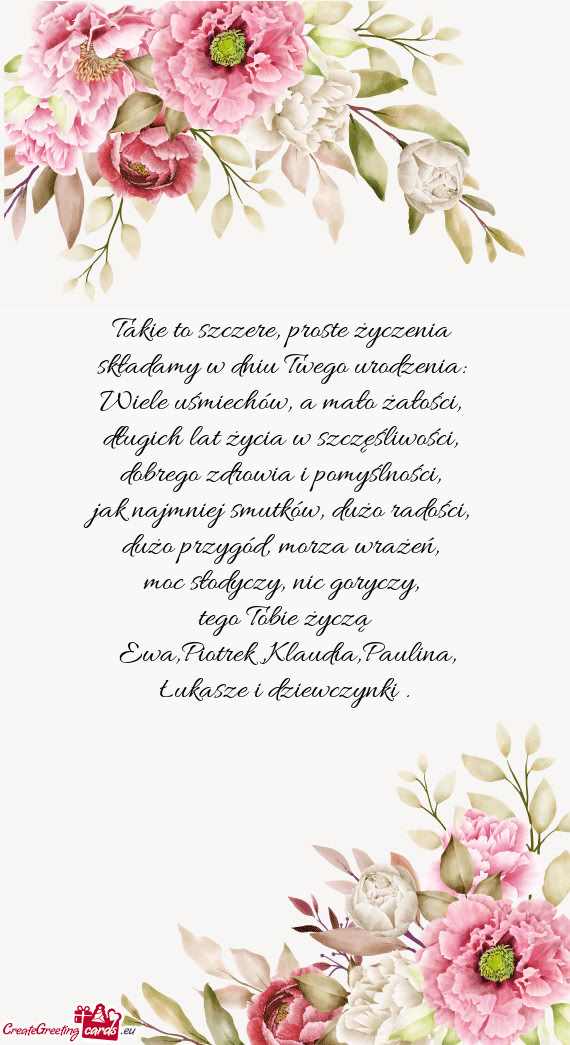 Takie to szczere, proste życzenia
składamy w dniu Twego urodzenia:
Wiele uśmiechów, a mało żałości,
długich lat życia w szczęśliwości,
dobrego zdrowia i pomyślności,
jak najmniej smutków, dużo radości,
dużo przygód, morza wrażeń,
moc słodyczy, nic goryczy,
tego Tobie życzą
Ewa,Piotrek ,Klaudia,Paulina,
Łukasze i dziewczynki .
CreateGreeting cards .eu